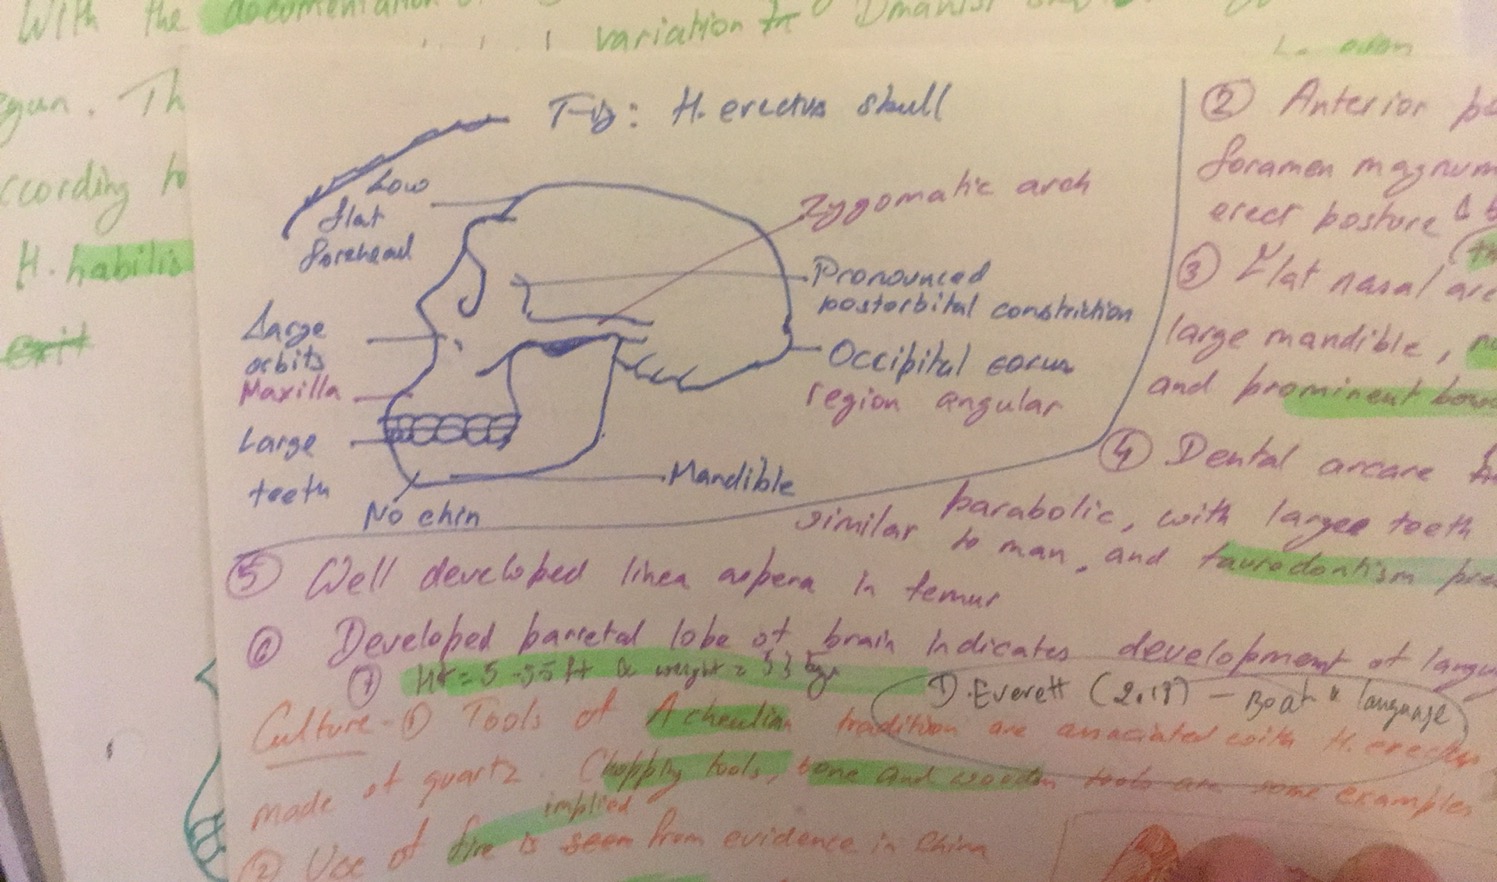 With the documentation
variation in Dmanisi
gun. Th
ccording to
H. habilis
exit
Fig: H. erectus skull
Low
flat
forehead
Zygomatic arch
Pronounced
postorbital constriction
Large
orbits
Maxilla
Occipital
region angular
Large
teeth
Mandible
No chin
② Anterior
foramen magnum
erect posture &
③ Flat nasal
large mandible,
and prominent
④ Dental arcare
parabolic, with large teeth
similar to man, and taurodontism
⑤ Well developed linea aspera in femur
⑥ Developed parietal lobe of brain indicates development of
⑦ Ht = 5 - 5.5 ft & weight = 53 kgs
D. Everett (2018) - Boat & language
Culture - ① Tools of Acheulian tradition are associated with H. erectus
made of quartz. Chopping tools, bone and wooden tools are some examples
implied
② Use of fire is seen from evidence in China